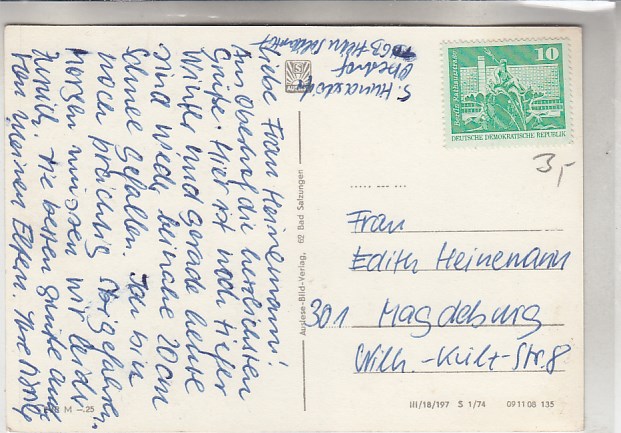 S. Hunger
Oberhof
Liebe Frau Heinemann!
Aus Oberhof die herzlichsten
Grüße. Hier ist noch tiefer
Winter und gerade heute
sind wieder beinahe 20 cm
Schnee gefallen. Ich bin
noch prächtig Ski gefahren.
Morgen müssen wir leider
zurück. Die besten Grüße auch
von meinen Eltern. Ihre
Berlin, Rathausstrasse
10
DEUTSCHE DEMOKRATISCHE REPUBLIK
3,-
Frau
Edith Heinemann
301 Magdeburg
Wilh.-Külz-Str. 8
Auslese-Bild-Verlag, 62 Bad Salzungen
M -.25
III/18/197 S 1/74 09 11 08 135